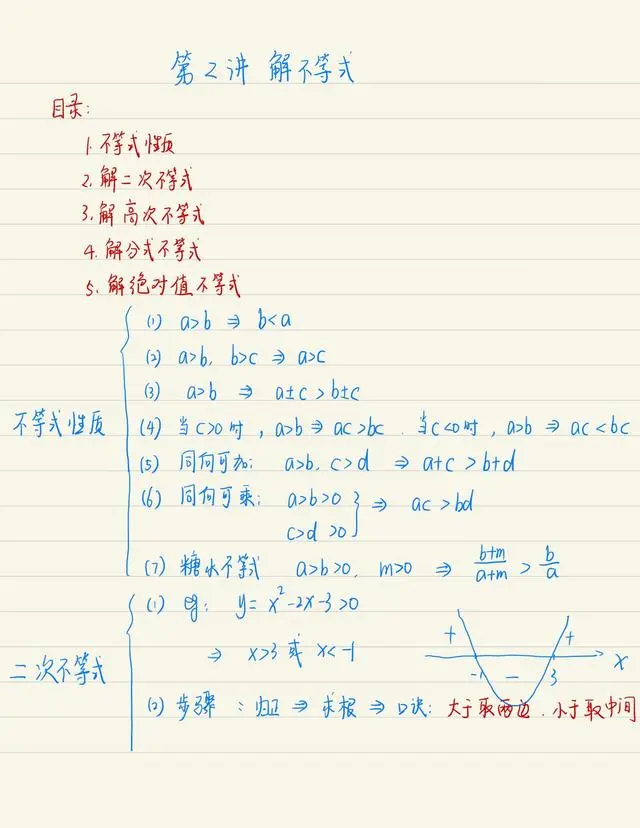 第2讲 解不等式
目录:
1. 不等式性质
2. 解二次不等式
3. 解高次不等式
4. 解分式不等式
5. 解绝对值不等式
不等式性质
(1) a>b ⇒ b<a
(2) a>b, b>c ⇒ a>c
(3) a>b ⇒ a±c>b±c
(4) 当c>0时, a>b ⇒ ac>bc. 当c<0时, a>b ⇒ ac<bc
(5) 同向可加: a>b, c>d ⇒ a+c>b+d
(6) 同向可乘: a>b>0
c>d>0 } ⇒ ac>bd
(7) 糖水不等式 a>b>0, m>0 ⇒ (b+m)/(a+m) > b/a
二次不等式
(1) eg: y=x²-2x-3>0
⇒ x>3 或 x<-1
+ - + -1 3 x
(2) 步骤: 归正 ⇒ 求根 ⇒ 口诀: 大于取两边. 小于取中间